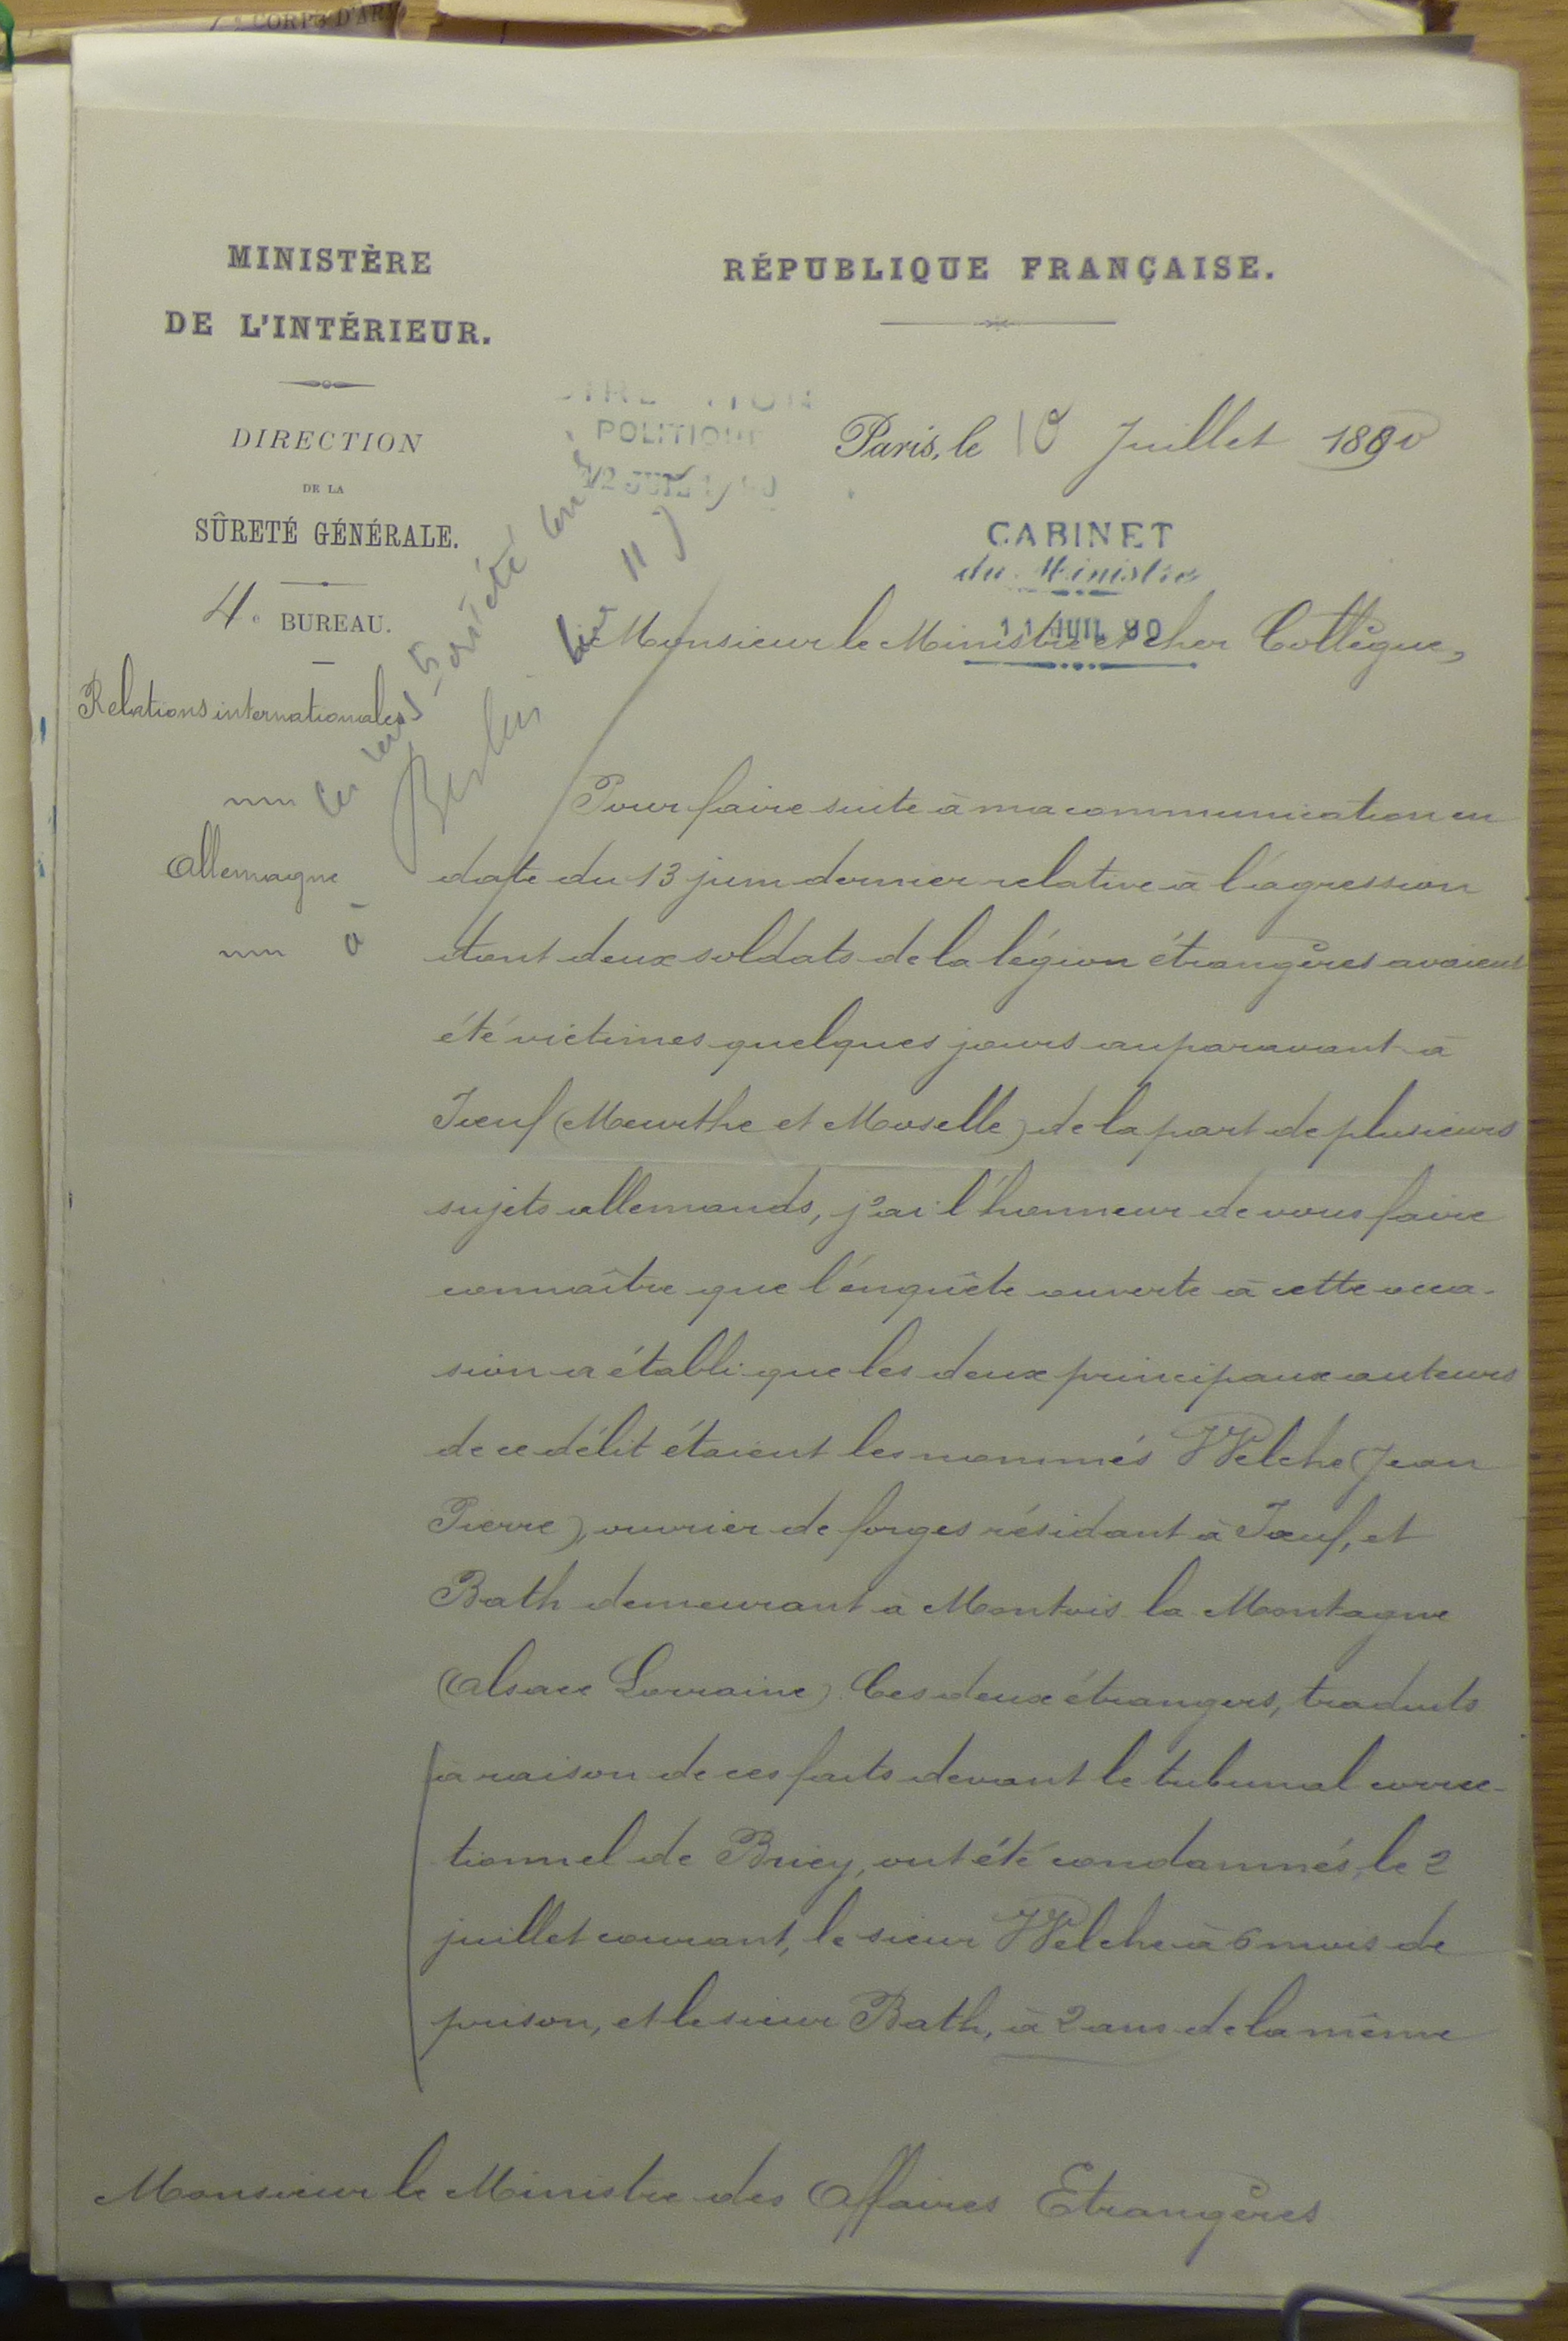 CORPS D'AR
MINISTÈRE
DE L'INTÉRIEUR.
DIRECTION
DE LA
SÛRETÉ GÉNÉRALE.
4e BUREAU.
Relations internationales
Allemagne
RÉPUBLIQUE FRANÇAISE.
POLITIQUE
12 JUIL
Paris, le 10 Juillet 1890
CABINET
du Ministre
11 JUIL 90
Berlin
11 J
Monsieur le Ministre et cher Collègue,
Pour faire suite à ma communication en
date du 13 juin dernier relative à l'agression
dont deux soldats de la légion étrangères avaient
été victimes quelques jours auparavant à
Joeuf (Meurthe et Moselle) de la part de plusieurs
sujets allemands, j'ai l'honneur de vous faire
connaître que l'enquête ouverte à cette occa-
sion a établi que les deux principaux auteurs
de ce délit étaient les nommés Welche (Jean
Pierre), ouvrier de forges résidant à Joeuf, et
Bath demeurant à Montois la Montagne
(Alsace Lorraine). Ces deux étrangers, traduits
à raison de ces faits devant le tribunal correc-
tionnel de Briey, ont été condamnés, le 2
juillet courant, le sieur Welche à 6 mois de
prison, et le sieur Bath, à 2 ans de la même
Monsieur le Ministre des Affaires Etrangères